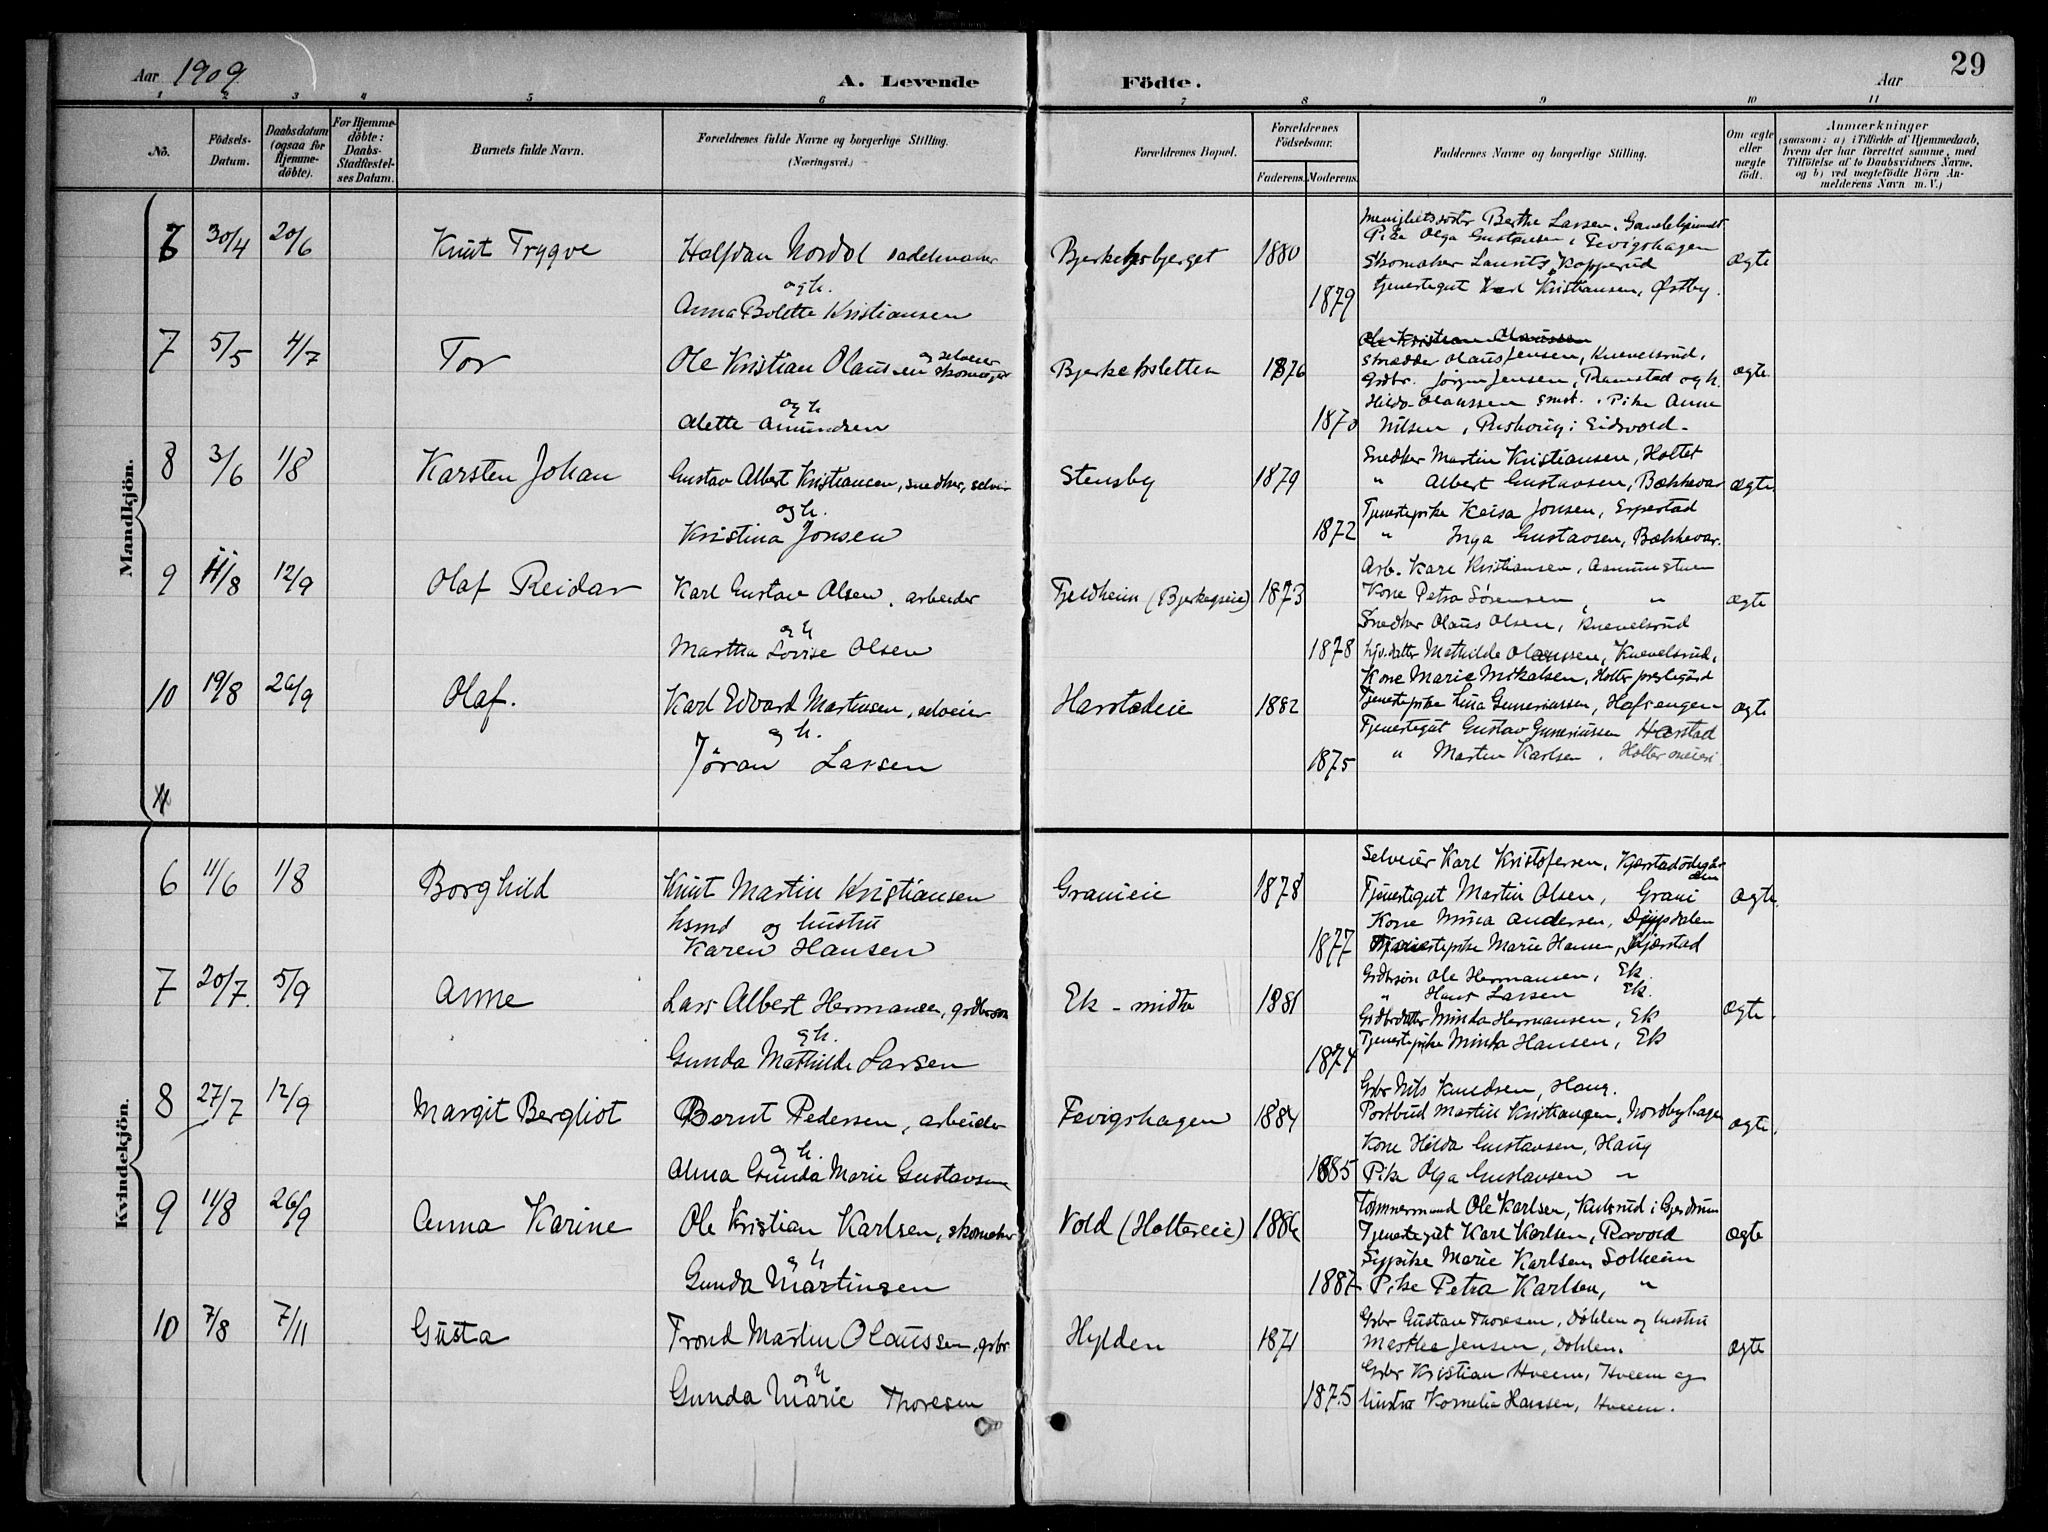 29
Aar 1909. A. Levende Födte. Aar
1 2 3 4 5 6 7 8 9 10 11
No. Födsels-Datum. Daabsdatum (ogsaa for Hjemme-döbte). For Hjemme-döbte: Daabs-Stadfæstel-ses Datum. Barnets fulde Navn. Forældrenes fulde Navne og borgerlige Stilling. (Næringsvei.) Forældrenes Bopæl. Forældrenes Födselsaar. Faderens. Moderens. Faddernes Navne og borgerlige Stilling. Om ægte eller uægte födt. Anmærkninger (saasom: a) i Tilfælde af Hjemmedaab, hvem der har forrettet samme, med Tilföielse af to Daabsvidners Navne, og b) ved uægtefödte Börn An-melderens Navn m. V.)
Mandkjön.
6 30/4 20/6 Knut Trygve Halfdan Nordal sadelmaker 1880 ægte
og h.
Anna Bolette Kristiansen 1879
Menighetssöster Berthe Larsen,
Pike Olga Gustavsen, Fevigshagen
Skomaker Laurits Kopperud
Tjenestegut Karl Kristiansen, Østby.
7 5/5 4/7 Tor Ole Kristian Olaussen skomager og selveier 1876 ægte.
og h
Alette Amundsen 1870
Ole Kristian Olaussen
Skrædder Olaus Jensen, Knevelsrud,
Grdbr. Jörgen Jensen, Ramstad og h.
Hilda Olaussen smst. Pike Anne
Nilsen, i Eidsvold.
8 3/6 1/8 Karsten Johan Gustav Albert Kristiansen, snedker, selveier Stensby 1879 ægte.
og h.
Kristina Jonsen 1872
Snedker Martin Kristiansen, Holtet
" Albert Gustavsen, Bækkevar
Tjenestepike Kaisa Jonsen, Erpestad
" Inga Gustavsen, Bækkevar.
9 11/8 12/9 Olaf Reidar Karl Gustav Olsen, arbeider Fjeldheim (Bjerkeseie) 1873 ægte
og h
Martha Lovise Olsen 1878
Arb. Karl Kristiansen, Aamunstuen
Kone Petra Sørensen, "
Snedker Olaus Olsen, Knevelsrud
Mathilde Olaussen, Knevelsrud,
10 19/8 26/9 Olaf. Karl Edvard Martinsen, selveier Harstadeie 1882 ægte
og h.
Jöran Larsen 1875
Kone Marie Mikalsen, Holter prestegård
Tjenestepike Lina Gunneriussen, Hafsengen
Tjenestegut Gustav Gunneriussen Harstad
" Martin Karlsen, Holter meieri
11
Kvindekjön.
6 11/6 1/8 Borghild Knut Martin Kristiansen Granieie 1878 ægte.
hsmd og hustru
Karen Hansen 1877
Selveier Karl Kristofersen, Kjærstadødegården
Tjenestegut Martin Olsen, Grani
Kone Mina Andersen, Djupdalen
Tjenestepike Marie Hansen, Kjærstad
7 20/7. 5/9 Anne Lars Albert Hermansen, grdbrsøn Ek - midtre 1881 ægte.
og h.
Gunda Mathilde Larsen 1874
Grdbrsön Ole Hermansen, Ek.
" Hans Larsen Ek.
Grdbrdatter Minda Hermansen, Ek
Tjenestepike Minda Hansen, Ek
8 27/7 12/9 Margit Bergliot Bernt Pedersen, arbeider Fevigshagen 1884 ægte.
og h.
Alma Gunda Marie Gustavsen 1885
Grbr Nils Knudsen, Haug.
Postbud Martin Kristiansen, Nordbyhagen
Kone Hilda Gustavsen, Haug
Pike Olga Gustavsen "
9 11/8 26/9 Anna Karine Ole Kristian Karlsen, skomaker Vold (Holtereie) 1886 ægte
og h
Gunda Martinsen 1887
Tömmermand Ole Karlsen, Kulsrud i Gjerdrum
Tjenestegut Karl Karlsen, Rovold
Sypike Marie Karlsen, Solheim
Pike Petra Karlsen, "
10 7/8 7/11 Gusta Trond Martin Olaussen, grbr Hylden 1871 ægte
og h
Gunda Marie Thoresen 1875
Grbr Gustav Thoresen, Dohlen og hustru
Marthe Jensen, Dohlen.
Grbr Kristian Hveem, Hveem og
hustru Kornelia Hansen, Hveem.